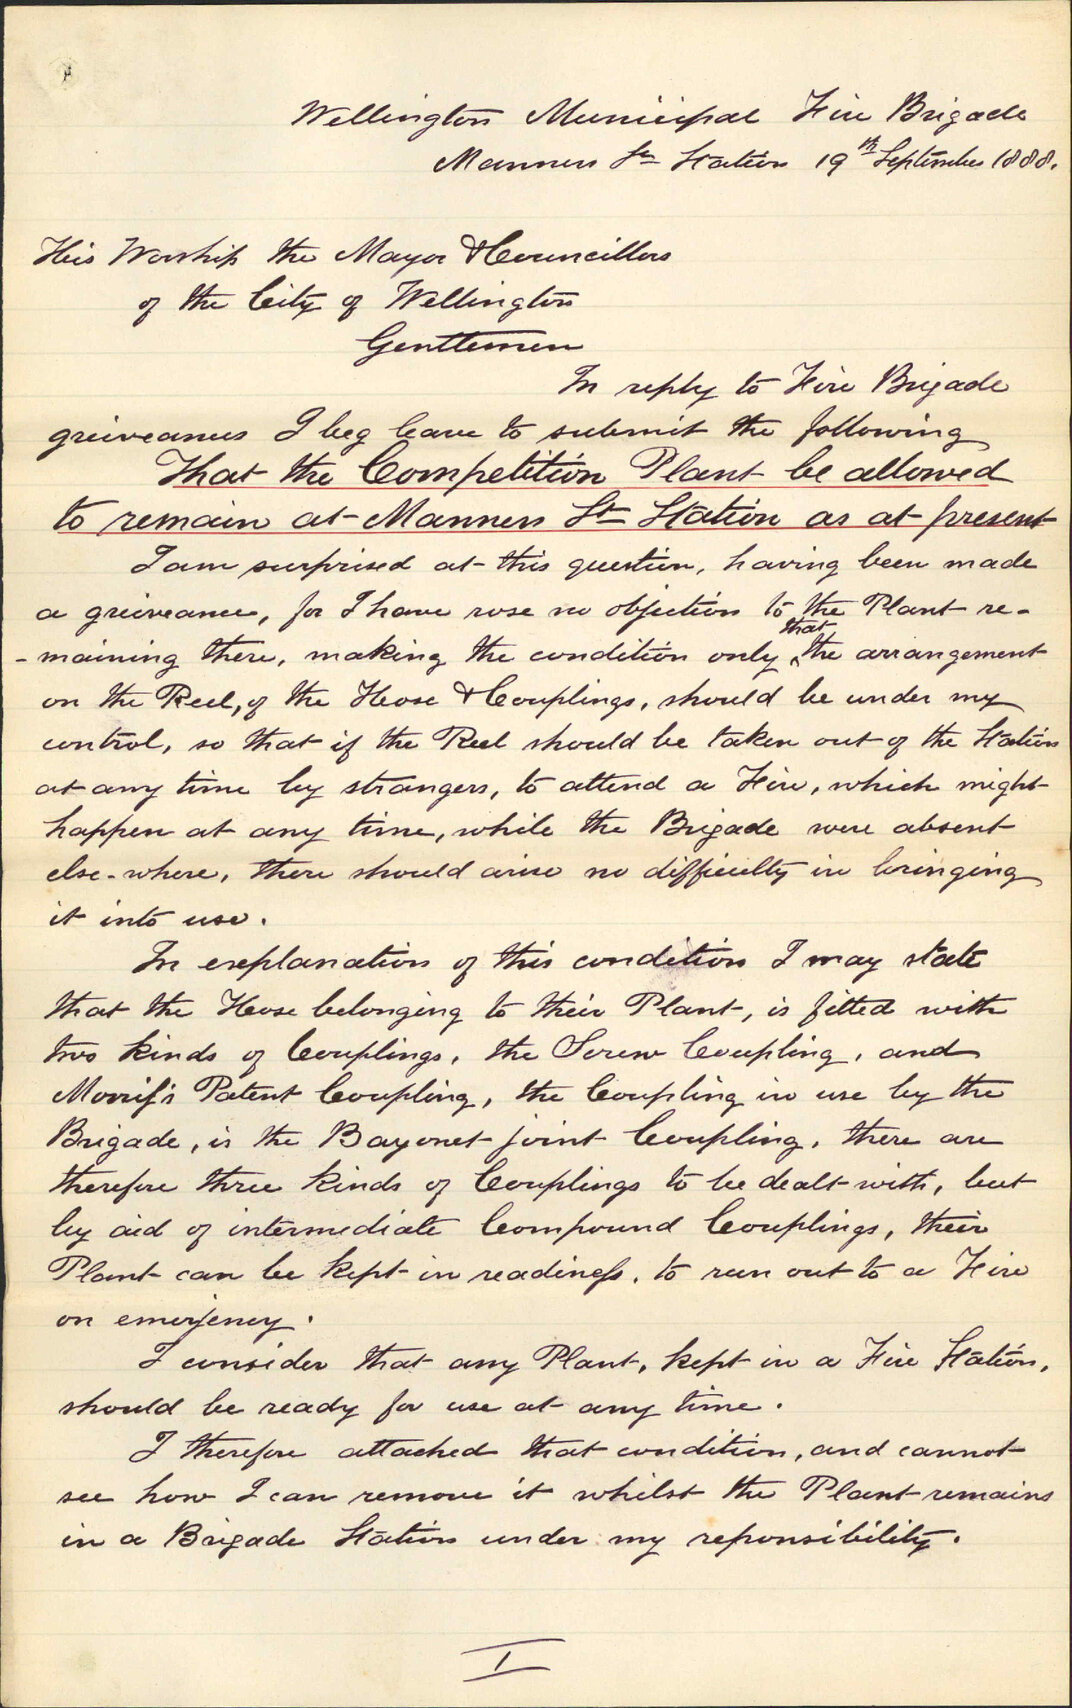 Wellington Municipal Fire Brigade
Manners St Station 19th September 1888.
His Worship the Mayor & Councillors
of the City of Wellington
Gentlemen
In reply to Fire Brigade
greiveances I beg leave to submit the following
That the Competition Plant be allowed
to remain at Manners St Station as at present
I am surprised at this question, having been made
a greiveance, for I have rose no objection to the Plant re-
-maining there, making the condition only that the arrangement
on the Reel, of the Hose & Couplings, should be under my
control, so that if the Reel should be taken out of the Station
at any time by strangers, to attend a Fire, which might
happen at any time, while the Brigade were absent
else-where, there should arise no difficulty in bringing
it into use.
In explanation of this condition I may state
that the Hose belonging to their Plant, is fitted with
two kinds of Couplings, the Screw Coupling, and
Morris's Patent Coupling, the Coupling in use by the
Brigade, is the Bayonet joint Coupling, there are
therefore three kinds of Couplings to be dealt with, but
by aid of intermediate Compound Couplings, their
Plant can be kept in readiness, to run out to a Fire
on emerjency.
I consider that any Plant, kept in a Fire Station,
should be ready for use at any time.
I therefore attached that condition, and cannot
see how I can remove it whilst the Plant remains
in a Brigade Station under my reponsibility.
I